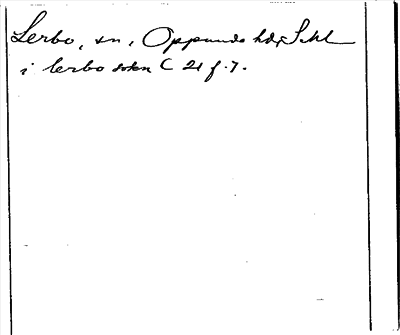 Lerbo, sn, Oppunda hd, Sdl
i lerbo sokn C 21 f. 7.